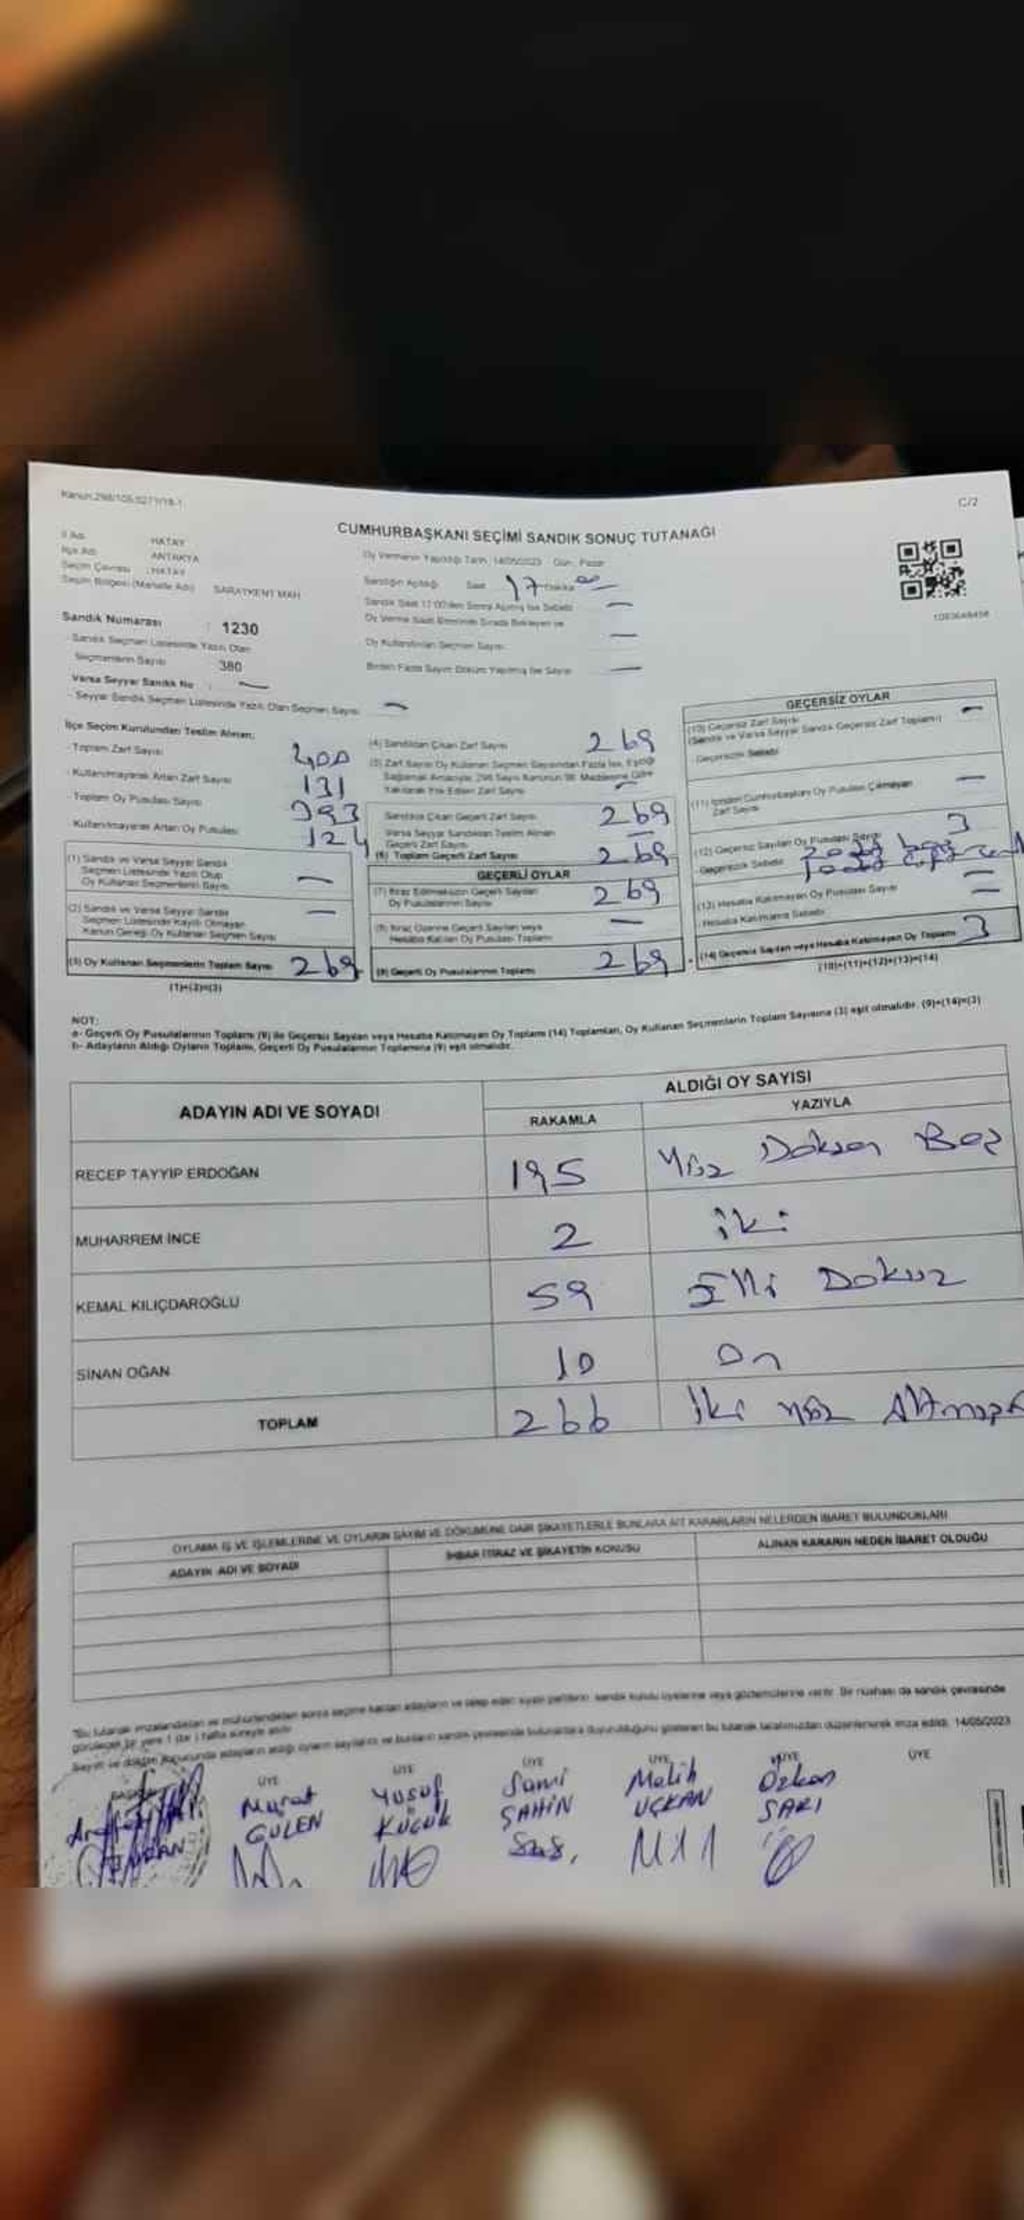 C/2
CUMHURBAŞKANI SEÇİMİ SANDIK SONUÇ TUTANAĞI
İl Adı : HATAY
İlçe Adı : ANTAKYA
Seçim Çevresi : HATAY
Seçim Bölgesi (Mahalle Adı) : SARAYKENT MAH
Oy Vermenin Yapıldığı Tarih : 14/05/2023 Gün : Pazar
Sandığın Açıldığı Saat 17 Dakika 00
Sandık Saat 17.00'den Sonra Açılmış İse Sebebi —
Oy Verme Saati Bitiminde Sırada Bekleyen ve
Oy Kullandırılan Seçmen Sayısı —
Birden Fazla Sayım Döküm Yapılmış İse Sayısı —
Sandık Numarası : 1230
Sandık Seçmen Listesinde Yazılı Olan
Seçmenlerin Sayısı : 380
Varsa Seyyar Sandık No : —
- Seyyar Sandık Seçmen Listesinde Yazılı Olan Seçmen Sayısı —
İlçe Seçim Kurulundan Teslim Alınan;
- Toplam Zarf Sayısı 400
- Kullanılmayarak Artan Zarf Sayısı 131
- Toplam Oy Pusulası Sayısı 393
- Kullanılmayarak Artan Oy Pusulası 124
(1) Sandık ve Varsa Seyyar Sandık
Seçmen Listesinde Yazılı Olup
Oy Kullanan Seçmenlerin Sayısı —
(2) Sandık ve Varsa Seyyar Sandık
Seçmen Listesinde Kayıtlı Olmayan
Kanun Gereği Oy Kullanan Seçmen Sayısı —
(3) Oy Kullanan Seçmenlerin Toplam Sayısı 269
(1)+(2)=(3)
(4) Sandıktan Çıkan Zarf Sayısı 269
(5) Zarf Sayısı Oy Kullanan Seçmen Sayısından Fazla İse, Eşitliği
Sağlamak Amacıyla, 298 Sayılı Kanunun 98. Maddesine Göre
Yakılarak Yok Edilen Zarf Sayısı —
Sandıkta Çıkan Geçerli Zarf Sayısı 269
Varsa Seyyar Sandıktan Teslim Alınan
Geçerli Zarf Sayısı —
(6) Toplam Geçerli Zarf Sayısı 269
GEÇERLİ OYLAR
(7) İtiraz Edilmeksizin Geçerli Sayılan
Oy Pusulalarının Sayısı 269
(8) İtiraz Üzerine Geçerli Sayılan veya
Hesaba Katılan Oy Pusulası Toplamı —
(9) Geçerli Oy Pusulalarının Toplamı 269
GEÇERSİZ OYLAR
(10) Geçersiz Zarf Sayısı —
(Sandık ve Varsa Seyyar Sandık Geçersiz Zarf Toplamı)
Geçersizlik Sebebi
(11) İçinden Cumhurbaşkanı Oy Pusulası Çıkmayan
Zarf Sayısı —
(12) Geçersiz Sayılan Oy Pusulası Sayısı 3
Geçersizlik Sebebi
(13) Hesaba Katılmayan Oy Pusulası Sayısı —
Hesaba Katılmama Sebebi —
(14) Geçersiz Sayılan veya Hesaba Katılmayan Oy Toplamı 3
(10)+(11)+(12)+(13)=(14)
NOT:
a- Geçerli Oy Pusulalarının Toplamı (9) ile Geçersiz Sayılan veya Hesaba Katılmayan Oy Toplamı (14) Toplamları, Oy Kullanan Seçmenlerin Toplam Sayısına (3) eşit olmalıdır. (9)+(14)=(3)
b- Adayların Aldığı Oyların Toplamı, Geçerli Oy Pusulalarının Toplamına (9) eşit olmalıdır.
ADAYIN ADI VE SOYADI ALDIĞI OY SAYISI
RAKAMLA YAZIYLA
RECEP TAYYİP ERDOĞAN 195 Yüz Doksan Beş
MUHARREM İNCE 2 iki
KEMAL KILIÇDAROĞLU 59 Elli Dokuz
SİNAN OĞAN 10 On
TOPLAM 266 İki yüz
OYLAMA İŞ VE İŞLEMLERİNE VE OYLARIN SAYIM VE DÖKÜMÜNE DAİR ŞİKAYETLERLE BUNLARA AİT KARARLARIN NELERDEN İBARET BULUNDUKLARI
ADAYIN ADI VE SOYADI İHBAR İTİRAZ VE ŞİKAYETİN KONUSU ALINAN KARARIN NEDEN İBARET OLDUĞU
14/05/2023
ÜYE ÜYE ÜYE ÜYE ÜYE ÜYE
Murat GÜLEN
Yusuf Küçük
Sami ŞAHİN
Melih UÇKAN
Özkan SARI